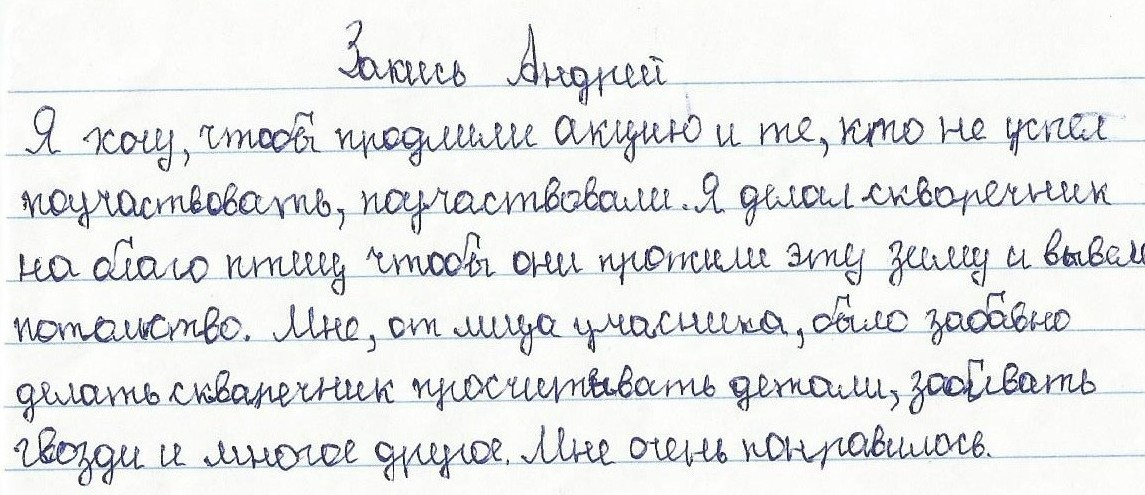 Закись Андрей
Я хочу, чтобы продлили акцию и те, кто не успел
поучаствовать, поучаствовали. Я делал скваречник
на благо птиц чтобы они прожили эту зиму и вывели
потомство. Мне, от лица учасника, было забавно
делать скваречник просчитывать детали, забивать
гвозди и многое другое. Мне очень понравилось.